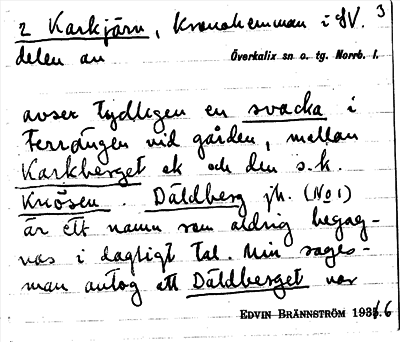 2 Karkjärn, kronohemman i SV. 3
delen av Överkalix sn o. tg. Norrb. l.
avser tydligen en svacka i
terrängen vid gården, mellan
Karkberget ek och den s.k.
Knösen. Däldberg jk. (No 1)
är ett namn som aldrig begag-
nas i dagligt tal. Min sages-
man antog att Däldberget var
EDVIN BRÄNNSTRÖM 1936.6